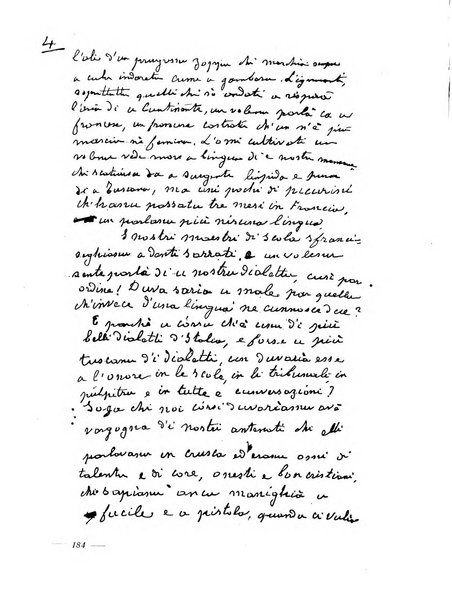 4
l'ali d'un prugressu zoppu chi marchia
a culu indaretu cume u gambaru. L'ignuranti,
soprattuttu quelli chi sò andati a respirà
l'aria di u Cuntinente, un volenu parlà ca u
francese, un francese castratu ch'un n'è più
masciu nè femina. L'omi cultivati un
volenu vede more a lingua di e nostre mamme
chi scaturisce da a surgente limpida e pura
di a Tuscana, ma uni pochi di piccurini
ch'hanu passatu tre mesi in Francia,
un parlanu più nisuna lingua.
I nostri maestri di scola sfranci-
seghianu a denti sarrati, e un volenu
sente parlà di u nostru dialettu, cusì per
ordine! Duva saria u male per quelli
ch'invece d'una lingua ne cunnosce due?
E perchè u corsu ch'è unu di più
belli dialetti d'Italia, e forse u più
tuscanu d'i dialetti, un duvaria esse
a l'onore in le scole, in li tribunali, in
pulpitru e in tutte e cunversazioni?
Soga chi noi corsi duvariamu avè
vargogna di i nostri antenati chi elli
parlavanu in crusca ed eranu omi di
talentu e di core, onesti e bon cristiani,
chi sapianu ancu manighjà u
fucile e a pistola, quandu ci vulia
184